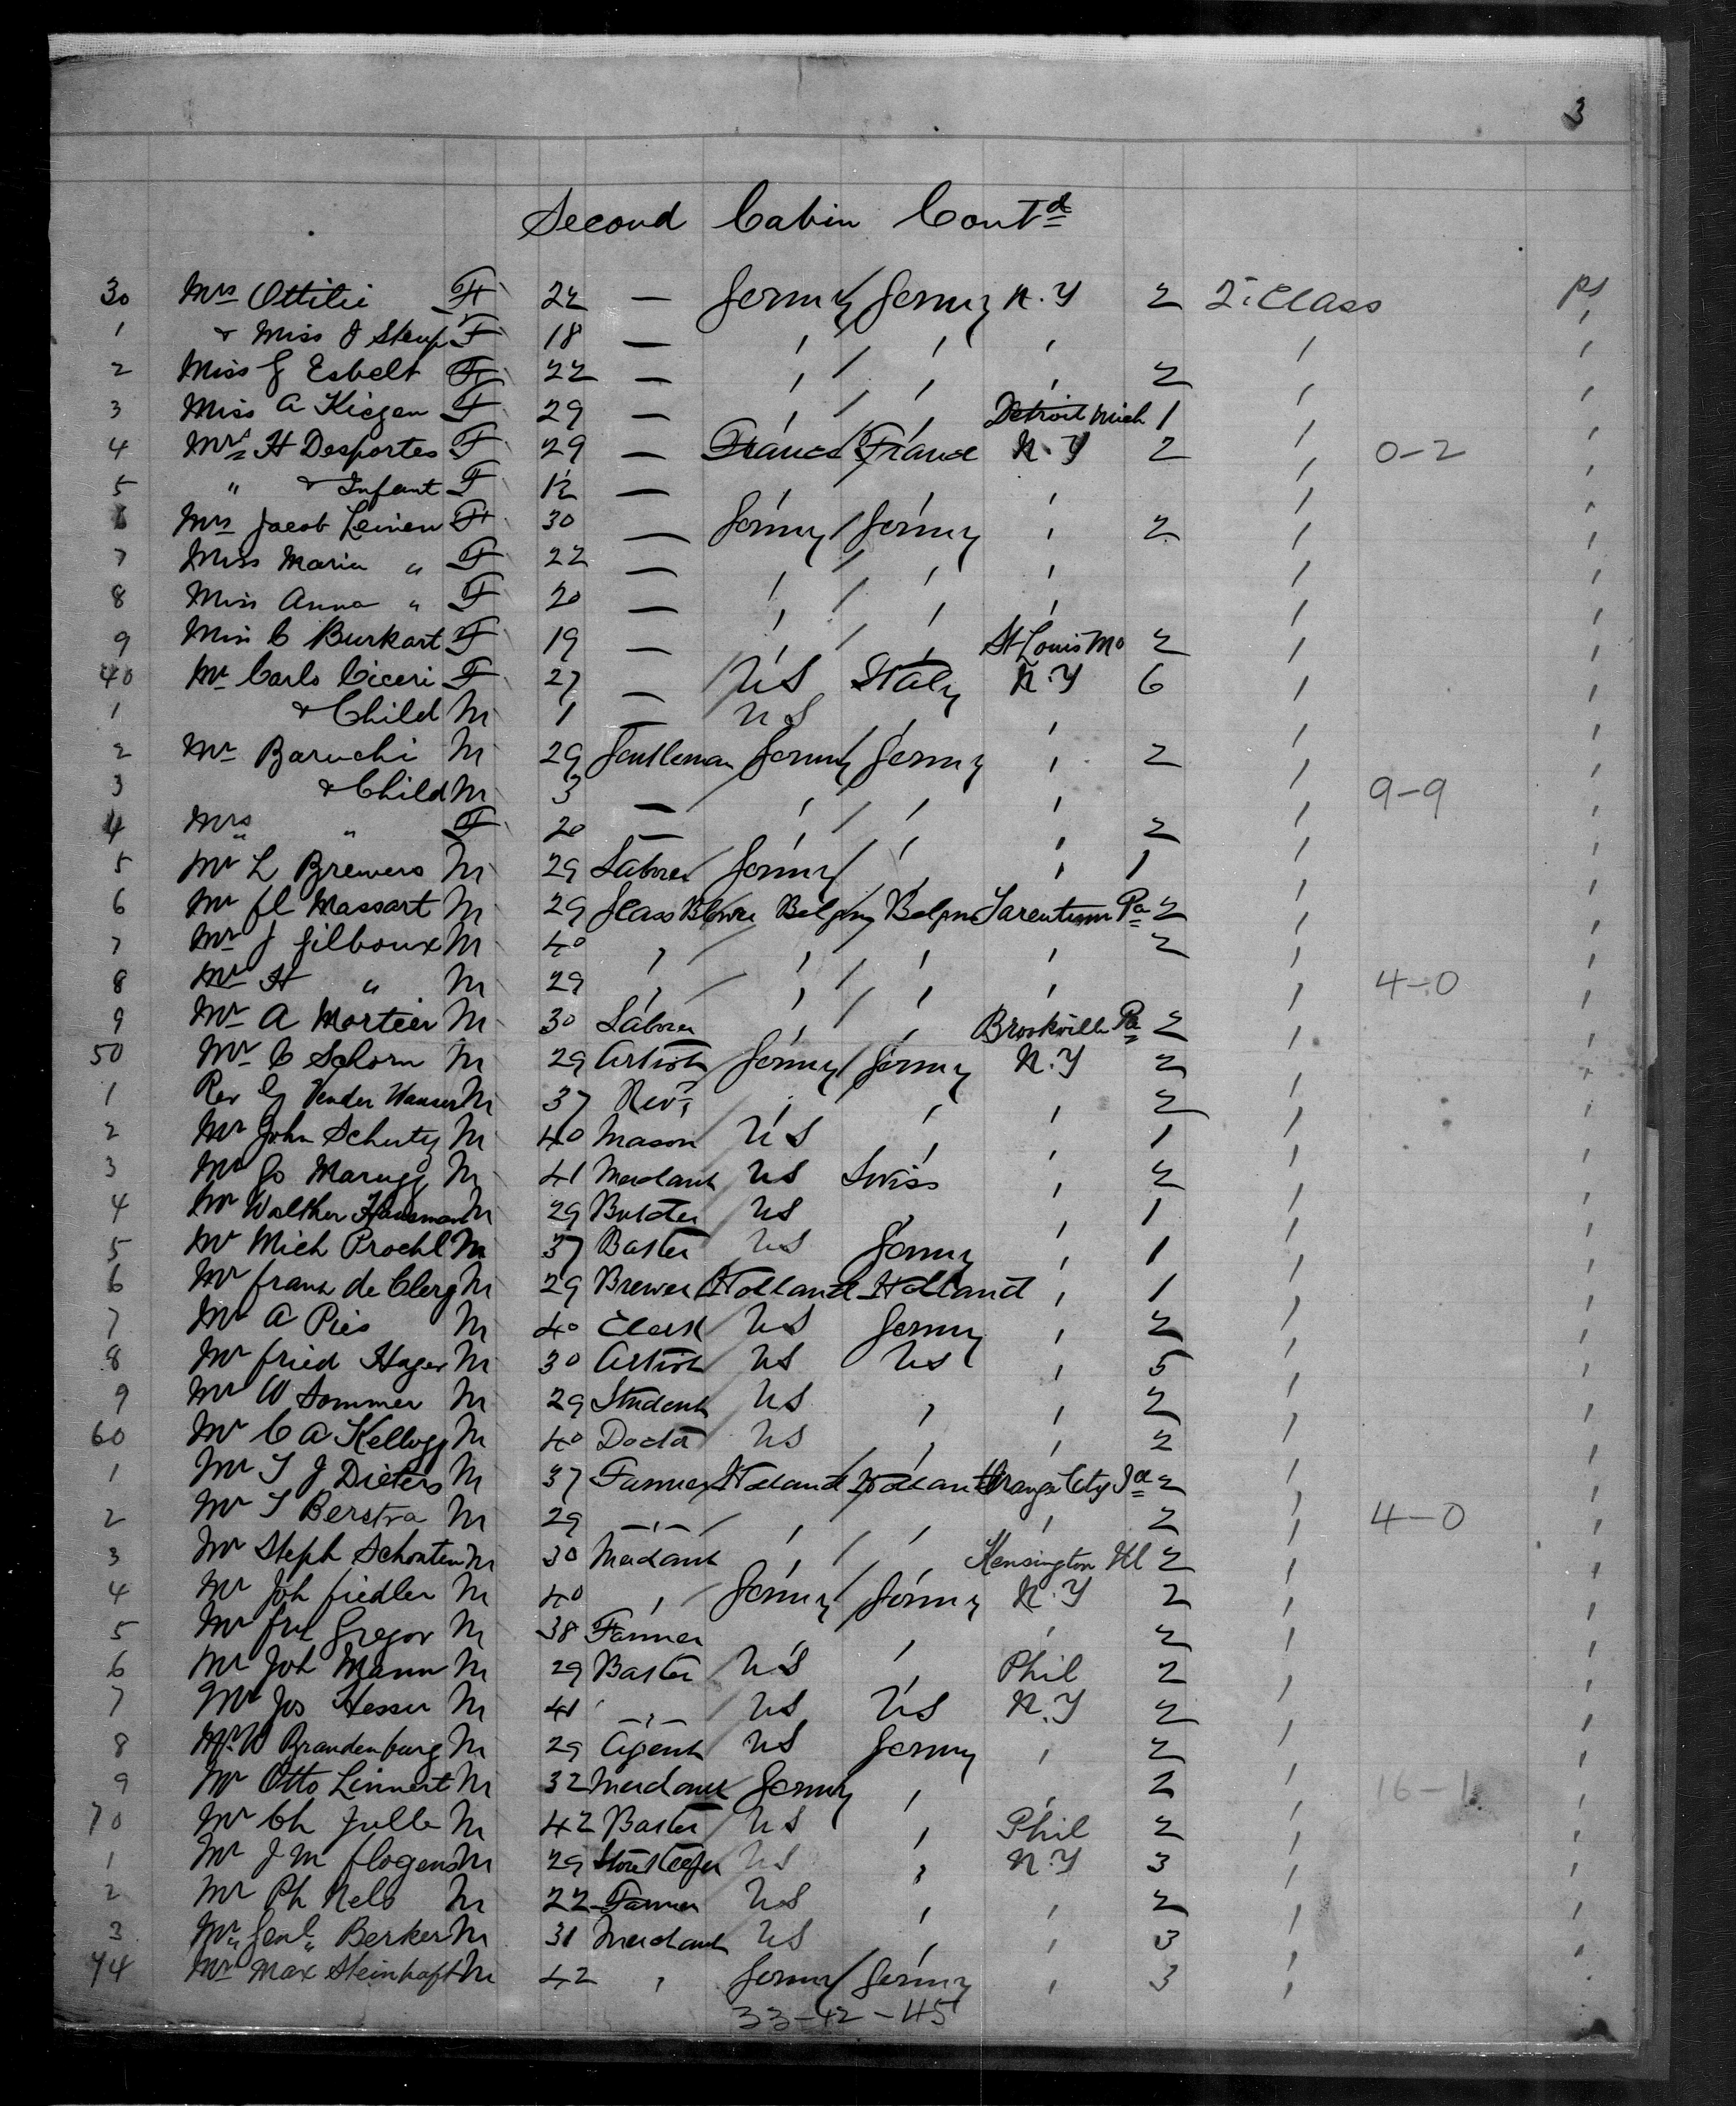 3
Second Cabin Contd
30 Mrs Ottilie F 22 — Germy / Germy N.Y 2 2. Class ps
1 & Miss J Stemp F 18 — ' / ' ' ' '
2 Miss G Esbelt F 22 — ' / ' ' 2 ' '
3 Miss A Kiegen F 29 — ' / ' Detroit Mich 1 ' '
4 Mrs H Desportes F 29 — France / France N.Y 2 ' 0-2 '
5 " & Infant F — ' ' ' ' '
6 Mrs Jacob Leinen F 30 — Germy / Germy ' 2 ' '
7 Miss Maria " F 22 — ' / ' ' ' '
8 Miss Anna " F 20 — ' / ' ' ' '
9 Miss C Burkart F 19 — ' / ' St Louis Mo 2 ' '
40 Mr Carlo Ciceri F 27 — / U.S Italy N.Y 6 ' '
1 & Child M 1 — U S ' ' ' '
2 Mr Baruchi M 29 Gentleman Germy / Germy ' 2 ' '
3 & Child M 3 — / ' / ' ' ' 9-9 '
4 Mrs " " F 20 — ' / ' ' 2 ' '
5 Mr L Brewers M 29 Laborer / Germy / ' ' 1 ' '
6 Mr Massart M 29 Glass Blower Belgny / Belgm Tarentum Pa 2 ' '
7 Mr J Gilboux M 40 ' / ' / ' ' 2 ' '
8 Mr H " M 29 ' / ' / ' ' ' 4-0 '
9 Mr A Mortier M 30 Laborer ' ' Brookville Pa 2 ' '
50 Mr C Schorn M 29 Artist Germy / Germy N.Y 2 ' '
1 Rev G Vender Wansen M 37 Revd ' ' ' 2 ' '
2 Mr John Schutz M 40 Mason / U S ' ' 1 ' '
3 Mr Marugg M 41 Merchant U S Swiss ' 2 ' '
4 Mr Walther Hausman M 29 Butcher U S ' ' 1 ' '
5 Mr Mich Proehl M 37 Baker U S Germy ' 1 ' '
6 Mr Franz de Clerq M 29 Brewer Holland Holland ' 1 ' '
7 Mr A Pies M 40 Clerk / U S Germy ' 2 ' '
8 Mr Fried Hager M 30 Artist U S U S ' 5 ' '
9 Mr W Sommer M 29 Student U S ' ' 2 ' '
60 Mr C A Kellogg M 40 Doctor / U S ' ' 2 ' '
1 Mr T J Dieters M 37 Farmer Holland / Holland Orange City Ia 2 ' '
2 Mr T Berstra M 29 — ' — / ' / ' ' 2 ' 4-0 '
3 Mr Steph Schouten M 30 Merchant ' / ' Kensington Ill 2 ' '
4 Mr Joh Fiedler M 40 ' / Germy / Germy N.Y 2 ' '
5 Mr Gregor M 38 Farmer ' ' ' 2 ' '
6 Mr Joh Mann M 29 Baker / U S ' Phil 2 ' '
7 Mr Jos Hesser M 41 — ' — / U S U S N.Y 2 ' '
8 Mr W Brandenburg M 29 Agent U S Germy ' 2 ' '
9 Mr Otto Linnert M 32 Merchant Germy ' ' 2 ' 16-1 '
70 Mr Ch Julle M 42 Baker / U S ' Phil 2 ' '
1 Mr J M Flogens M 29 Storekeeper U S ' N.Y 3 ' '
2 Mr Ph Nels M 22 Farmer U S ' ' 2 ' '
3 Mr Berker M 31 Merchant U S ' ' 3 ' '
74 Mr Max Steinhaft M 42 ' Germy / Germy ' 3 ' '
33-42-45